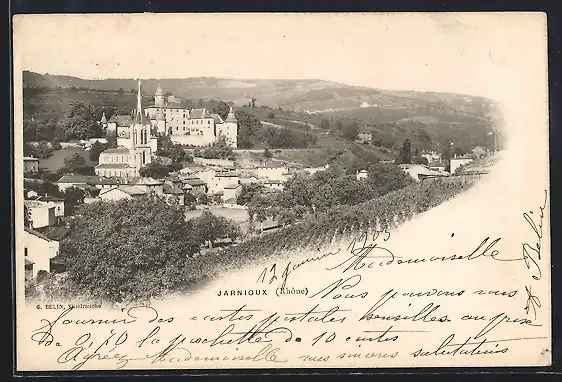 12 janvier 1903
Mademoiselle
JARNIOUX (Rhône)
Nous pouvons nous
G. BELIN, Villefranche
fournir des cartes postales bensilles au prix
de 0,10 la pochette de 10 cartes
Agréez Mademoiselle mes sincères salutations
G. Belin